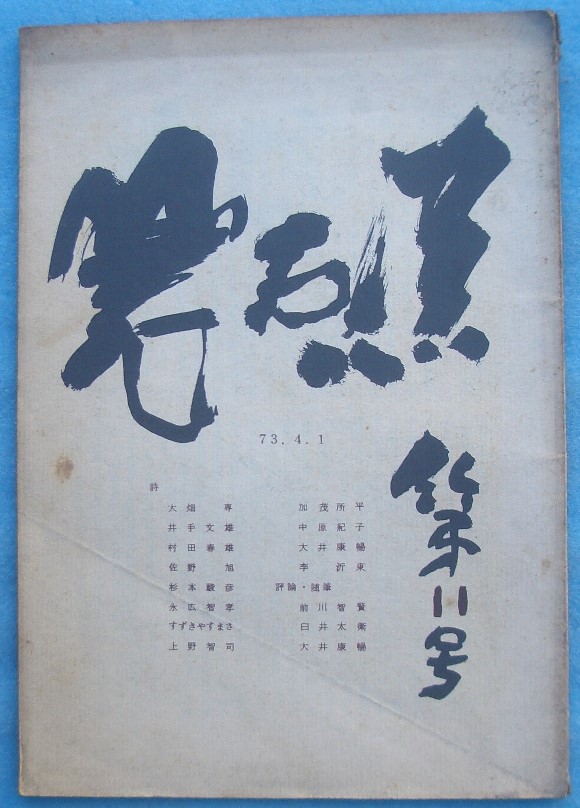 第11号
73.4.1
詩
大畑専
井手文雄
村田春雄
佐野旭
杉本駿彦
永広智孝
すずきやすまさ
上野智司
加茂所平
中原紀子
大井康暢
李沂東
評論・随筆
前川智賢
臼井太衛
大井康暢